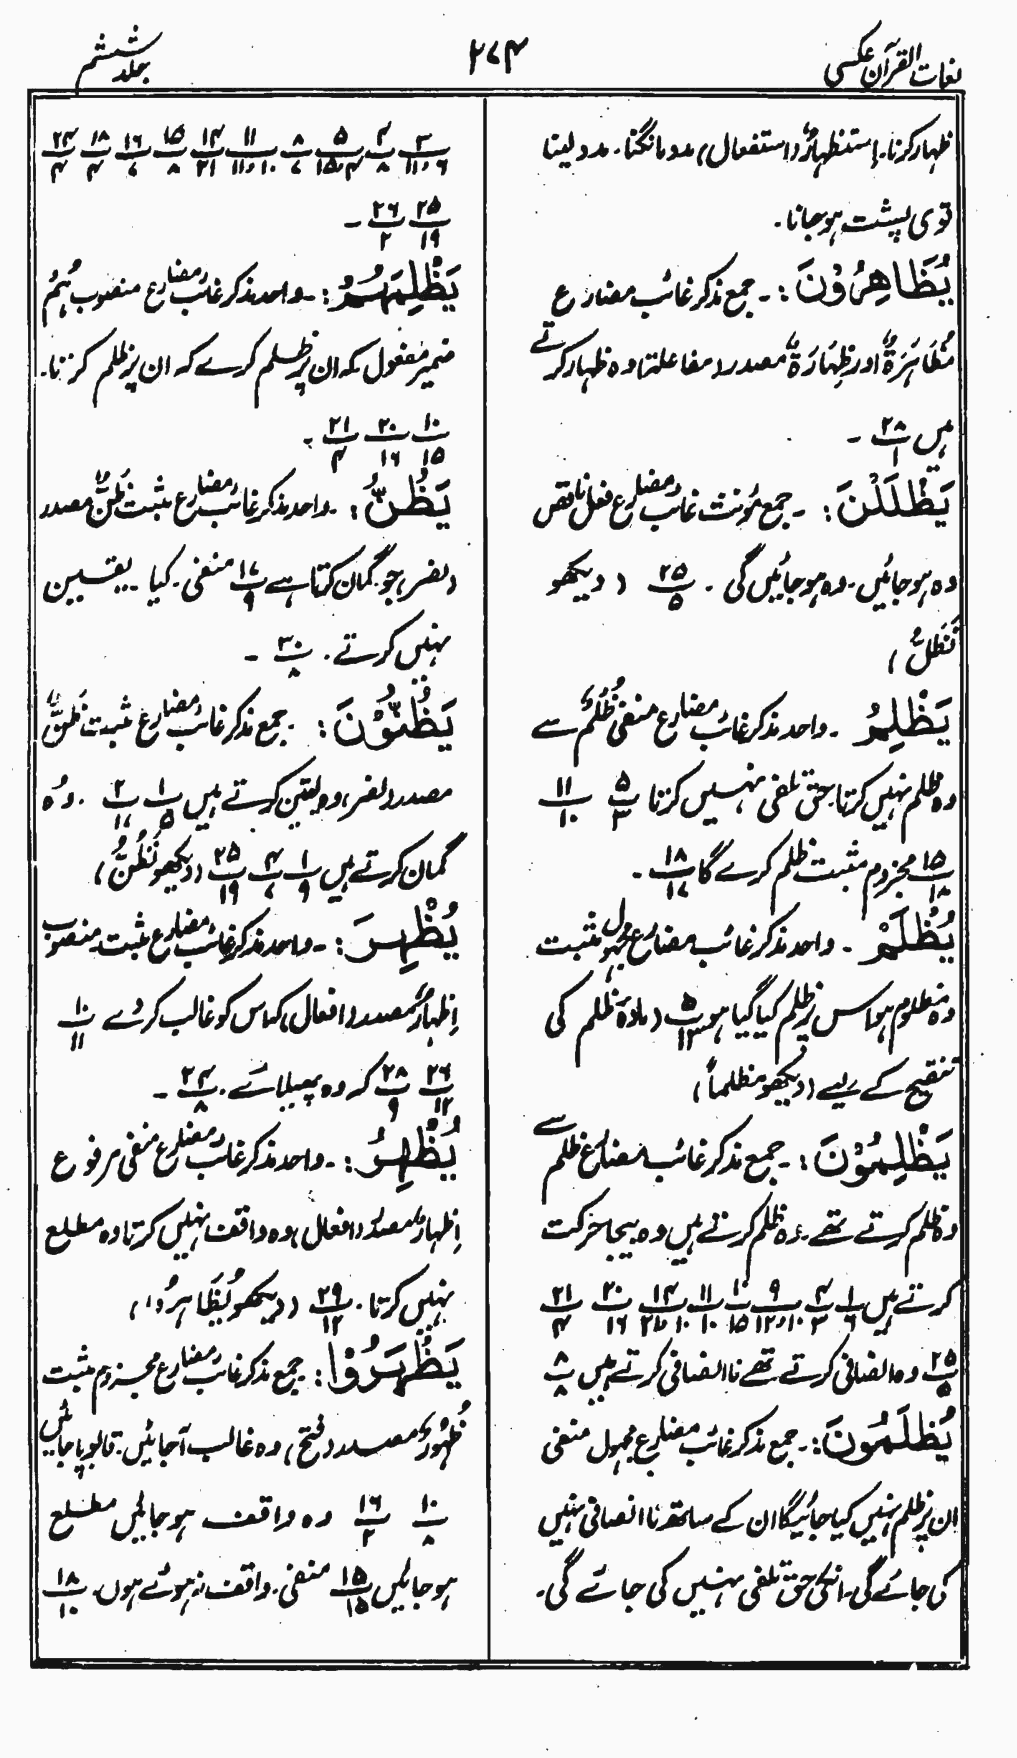 لغات القرآن عکسی
۲۷۴
جلد ششم
ظہار کرنا۔ اِستظہارٌ (استفعال) مدد مانگنا۔ مدد لینا
قوی پشت ہو جانا۔
یُظَاہِرُوْنَ :۔ جمع مذکر غائب مضارع
مُظَاہَرَۃٌ اور ظِہَارَۃٌ مصدر (مفاعلۃ) وہ ظہار کرتے
ہیں ۲۸/۱ ۔
یَظْلَلْنَ :۔ جمع مؤنث غائب مضارع فعل ناقص
وہ ہو جائیں۔ وہ ہو جائیں گی ۔ ۲۵/۵ (دیکھو
نَظَلُّ)
یَظْلِمُ ۔ واحد مذکر غائب مضارع منفی ظُلْمٌ سے
وہ ظلم نہیں کرتا۔ حق تلفی نہیں کرتا ۵/۳ ۱۱/۱۰
۱۵/۱۸ مجزوم مثبت ظلم کرے گا ۱۸/۱۷ ۔
یُظْلَمْ ۔ واحد مذکر غائب مضارع مجہول مثبت
وہ مظلوم ہو اس پر ظلم کیا گیا ہو ۵/۱۳ (مادہ ظلم کی
تنقیح کے لیے (دیکھو مظلماً)
یَظْلِمُوْنَ :۔ جمع مذکر غائب مضارع ظلم سے
وہ ظلم کرتے تھے۔ وہ ظلم کرتے ہیں وہ بیجا حرکت
کرتے ہیں ۱/۶ ۴/۳ ۹/۱۲،۱۰ ۱۰/۱۵ ۱۱/۱۰ ۱۴/۱۰،۲۱ ۲۰/۱۶ ۲۱/۴
۲۵/۵ وہ الضافی کرتے تھے نا انصافی کرتے ہیں ۸/۸
یُظْلَمُوْنَ :۔ جمع مذکر غائب مضارع مجہول منفی
ان پر ظلم نہیں کیا جائیگا ان کے ساتھ نا انصافی نہیں
کی جائے گی۔ انکی حق تلفی نہیں کی جائے گی۔
۳/۱۱،۶ ۴/۸ ۵/۱۵،۴ ۸/۷ ۱۱/۱۱،۱۰ ۱۴/۲۱ ۱۵/۸ ۱۶/۷ ۱۸/۴ ۲۴/۴
۲۵/۱۹ ۲۶/۲ ۔
یَظْلِمَہُمْ :۔ واحد مذکر غائب مضارع منصوب ہُمْ
ضمیر مفعول کہ ان پر ظلم کرے کہ ان پر ظلم کرتا۔
۱۰/۱۵ ۲۰/۱۶ ۲۱/۴ ۔
یَظُنُّ :۔ واحد مذکر غائب مضارع مثبت ظَنٌّ مصدر
(نصر) جو گمان کرتا ہے ۱۷/۹ منفی۔ کیا یقین
نہیں کرتے ۔ ۳۰/۸ ۔
یَظُنُّوْنَ :۔ جمع مذکر غائب مضارع مثبت ظَنٌّ
مصدر (نصر) وہ یقین کرتے ہیں ۱/۵ ۲/۱۷ ۔ وہ
گمان کرتے ہیں ۱/۹ ۴/۷ ۲۵/۱۹ (دیکھو نَظُنُّ)
یُظْہِرَ :۔ واحد مذکر غائب مضارع مثبت منصوب
اِظہارٌ مصدر (افعال) کہ اس کو غالب کر دے ۱۰/۱۱
۲۶/۱۲ ۲۸/۹ کہ وہ پھیلائے ۔ ۲۴/۸ ۔
یُظْہِرُ :۔ واحد مذکر غائب مضارع منفی مرفوع
اِظہار مصدر (افعال) وہ واقف نہیں کرتا وہ مطلع
نہیں کرتا ۔ ۲۹/۱۲ (دیکھو یُظَاہِرُوا)
یَظْہَرُوْا :۔ جمع مذکر غائب مضارع مجزوم مثبت
ظُہُوْرٌ مصدر (فتح) وہ غالب آ جائیں۔ قابو پا جائیں
۱۰/۸ ۱۶/۲ وہ واقف ہو جائیں مطلع
ہو جائیں ۱۵/۱۵ منفی۔ واقف نہ ہوئے ہوں۔ ۱۸/۱۰